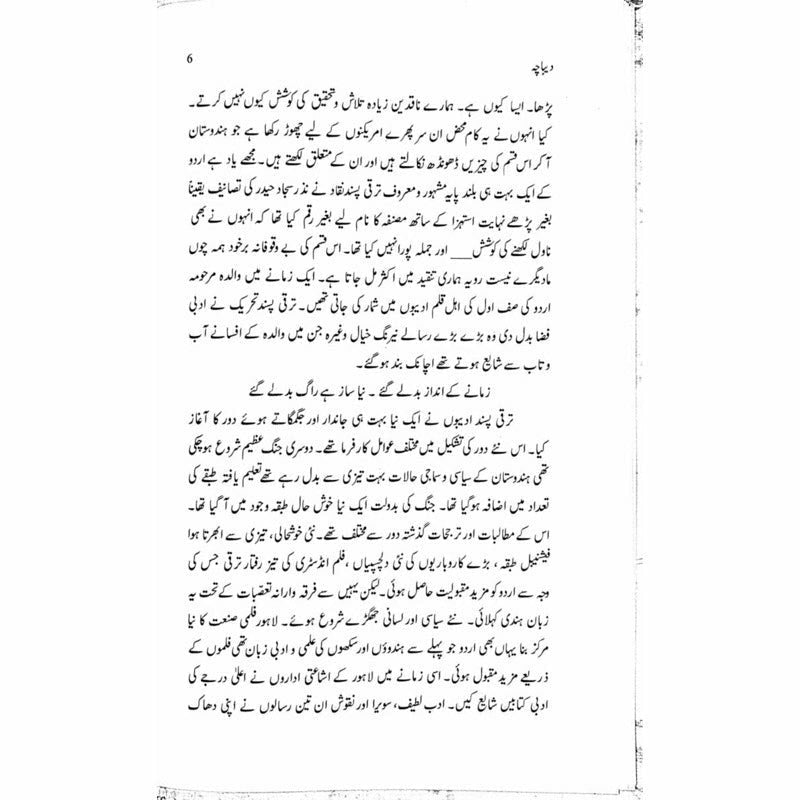 دیباچہ 6
پڑھا۔ ایسا کیوں ہے۔ ہمارے ناقدین زیادہ تلاش و تحقیق کی کوشش کیوں نہیں کرتے۔
کیا انہوں نے یہ کام محض ان سر پھرے امریکنوں کے لیے چھوڑ رکھا ہے جو ہندوستان
آ کر اس قسم کی چیزیں ڈھونڈھ نکالتے ہیں اور ان کے متعلق لکھتے ہیں۔ مجھے یاد ہے اردو
کے ایک بہت ہی بلند پایہ مشہور و معروف ترقی پسند نقاد نے نذر سجاد حیدر کی تصانیف یقیناً
بغیر پڑھے نہایت استہزا کے ساتھ مصنفہ کا نام لیے بغیر رقم کیا تھا کہ انہوں نے بھی
ناول لکھنے کی کوشش___ اور جملہ پورا نہیں کیا تھا۔ اس قسم کی بے وقوفانہ برخود ہمہ چوں
مادیگرے نیست رویہ ہماری تنقید میں اکثر مل جاتا ہے۔ ایک زمانے میں والدہ مرحومہ
اردو کی صف اول کی اہل قلم ادیبوں میں شمار کی جاتی تھیں۔ ترقی پسند تحریک نے ادبی
فضا بدل دی وہ بڑے بڑے رسالے نیرنگ خیال وغیرہ جن میں والدہ کے افسانے آب
و تاب سے شایع ہوتے تھے اچانک بند ہو گئے۔
زمانے کے انداز بدلے گئے ۔ نیا ساز ہے راگ بدلے گئے
ترقی پسند ادیبوں نے ایک نیا بہت ہی جاندار اور جگمگاتے ہوئے دور کا آغاز
کیا۔ اس نئے دور کی تشکیل میں مختلف عوامل کارفرما تھے۔ دوسری جنگ عظیم شروع ہو چکی
تھی ہندوستان کے سیاسی و سماجی حالات بہت تیزی سے بدل رہے تھے تعلیم یافتہ طبقے کی
تعداد میں اضافہ ہو گیا تھا۔ جنگ کی بدولت ایک نیا خوش حال طبقہ وجود میں آ گیا تھا۔
اس کے مطالبات اور ترجحات گذشتہ دور سے مختلف تھے۔ نئی خوشحالی، تیزی سے ابھرتا ہوا
فیشنیبل طبقہ ، بڑے کاروباریوں کی نئی دلچسپیاں ، فلم انڈسٹری کی تیز رفتار ترقی جس کی
وجہ سے اردو کو مزید مقبولیت حاصل ہوئی۔ لیکن یہیں سے فرقہ وارانہ تعصّبات کے تحت یہ
زبان ہندی کہلائی۔ نئے سیاسی اور لسانی جھگڑے شروع ہوئے۔ لاہور فلمی صنعت کا نیا
مرکز بنا یہاں بھی اردو جو پہلے سے ہندوؤں اور سکھوں کی علمی و ادبی زبان تھی فلموں کے
ذریعے مزید مقبول ہوئی۔ اسی زمانے میں لاہور کے اشاعتی اداروں نے اعلیٰ درجے کی
ادبی کتابیں شایع کیں۔ ادب لطیف، سویرا اور نقوش ان تین رسالوں نے اپنی دھاک